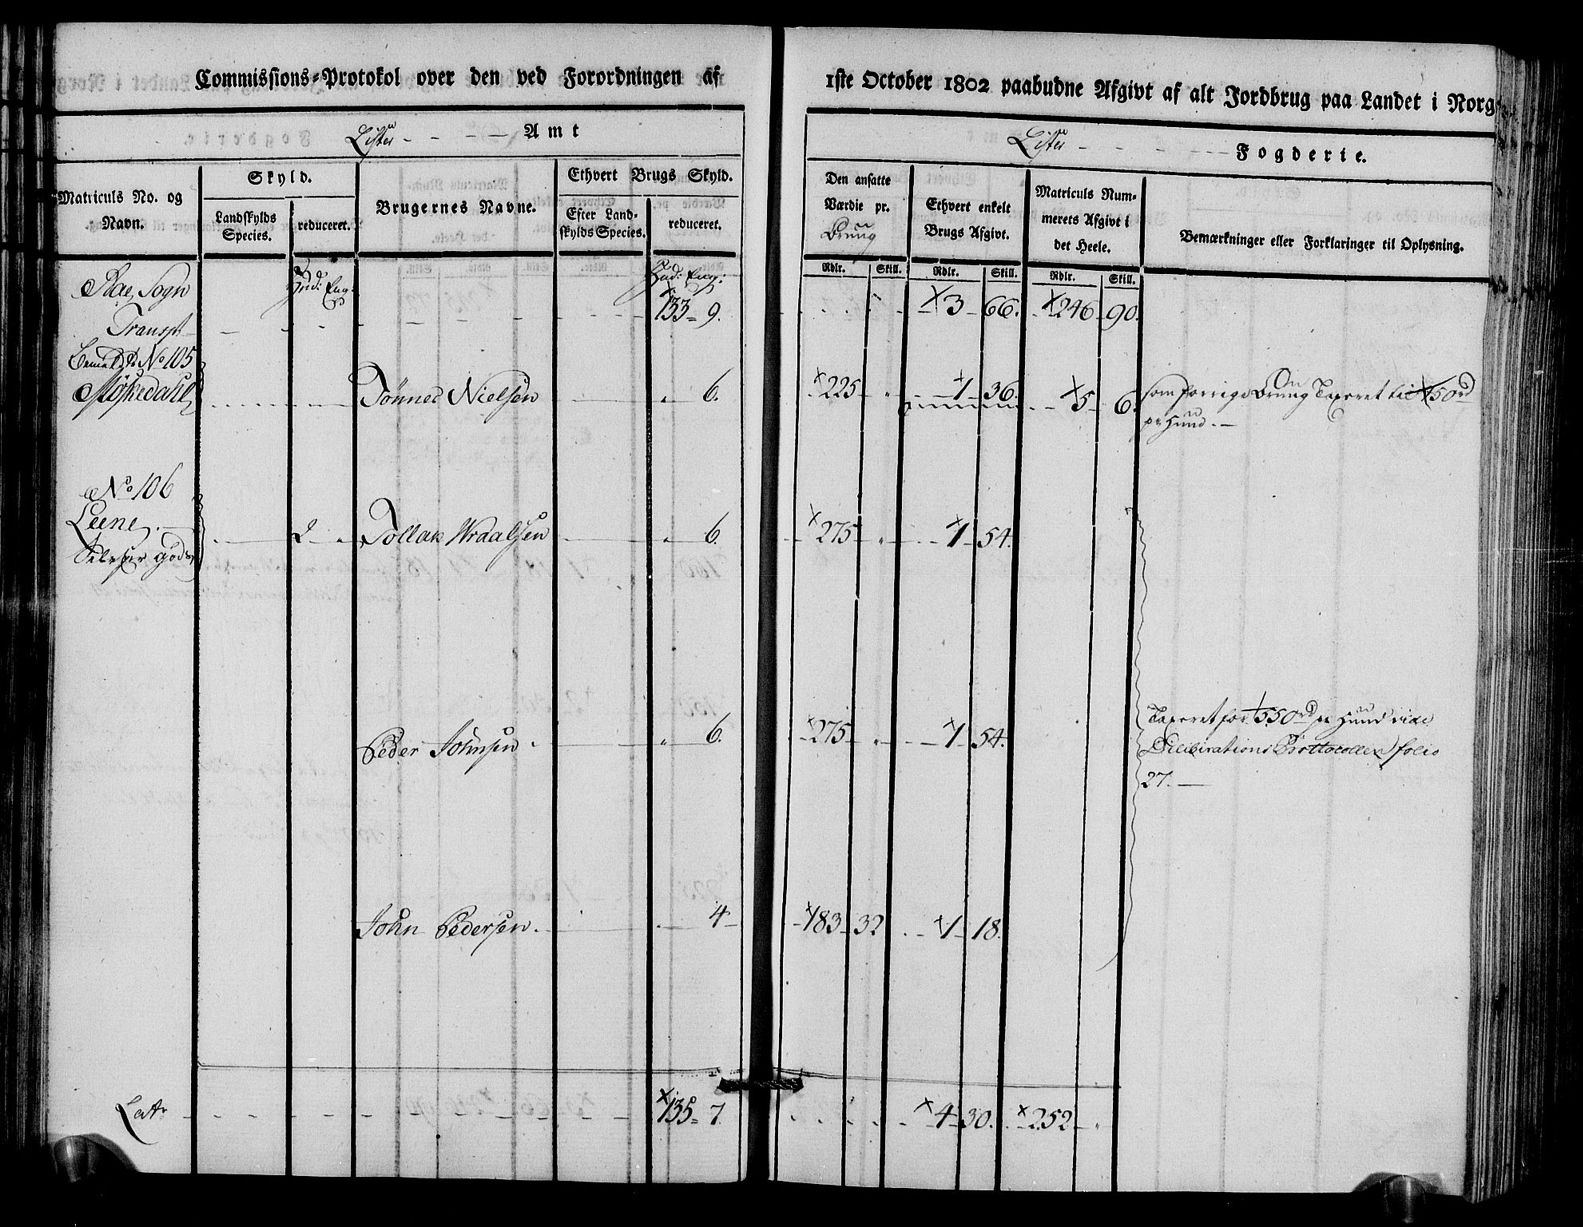 Commissions-Protokol over den ved Forordningen af
1ste October 1802 paabudne Afgivt af alt Jordbrug paa Landet i Norg
Lister Amt
Lister Fogderie.
Matriculs No. og Navn.
Skyld.
Landskylds Species.
reduceret.
Brugernes Navne.
Ethvert Brugs Skyld.
Efter Landskylds Species.
reduceret.
Den ansatte Værdie pr. Bruug
Ethvert enkelt Brugs Afgivt.
Matriculs Nummerets Afgivt i det Heele.
Bemærkninger eller Forklaringer til Oplysning.
Rdlr. Skill. Rdlr. Skill. Rdlr. Skill.
Sogn Hud: Eng: Hud: Eng:
Transpt 133 9. 3 66. 246 90.
No 105
Tønnes Nielsen 6. 225 1 36. 5 6. som forrige Bruug Taxeret til 450 rd
pr Hund.
No 106
Leene 2 Tollak 6. 275 1 54.
Peder Johnsen 6. 275 1 54. Taxeret for 550 rd pr Hund vide
Deliberations Prottocollen folio
27.
John Pedersen. 4 183 32 1 18.
Lats 135 7. 4 30. 252